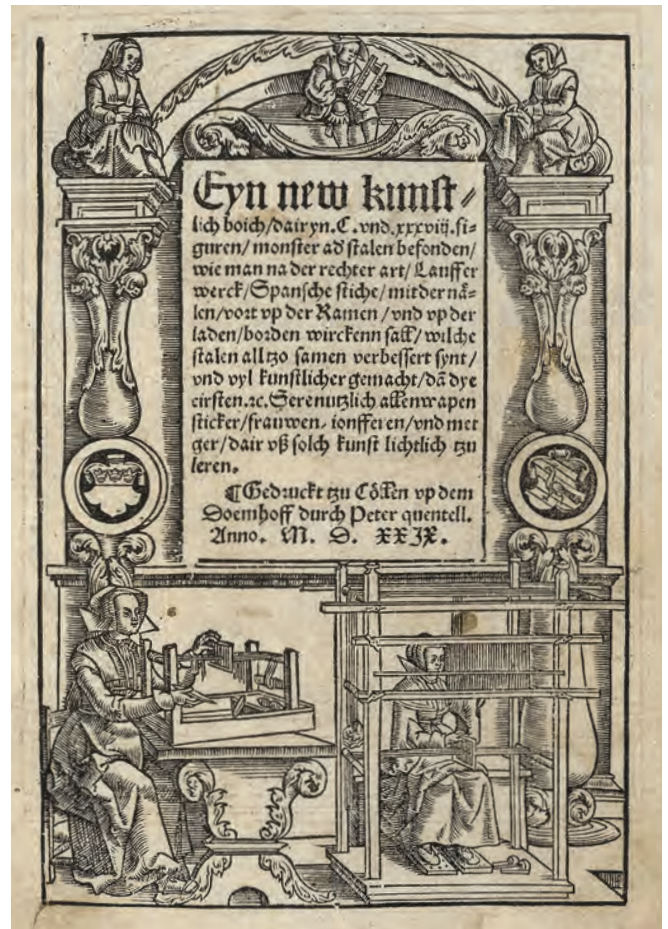 Eyn new kunst⸗
lich boich/dair yn.C.vnd.xxxviij.fi⸗
guren/monster ad̕ stalen befonden/
wie man na der rechter art/Lauffer
werck/Spansche stiche/mit der nå⸗
len/vort vp der Ramen/vnd vp der
laden/borden wirckenn sall/wilche
stalen alltzo samen verbessert synt/
vnd vyl kunstlicher gemacht/dā dye
eirsten.ꝛc.Sere nutzlich allen wapen
sticker/frauwen, ionfferen/vnd met
ger/dair vß solch kunst lichtlich tzu
leren.
¶Gedruckt tzu Cöllen vp dem
Doemhoff durch Peter quentell.
Anno. M. D. XXIX.